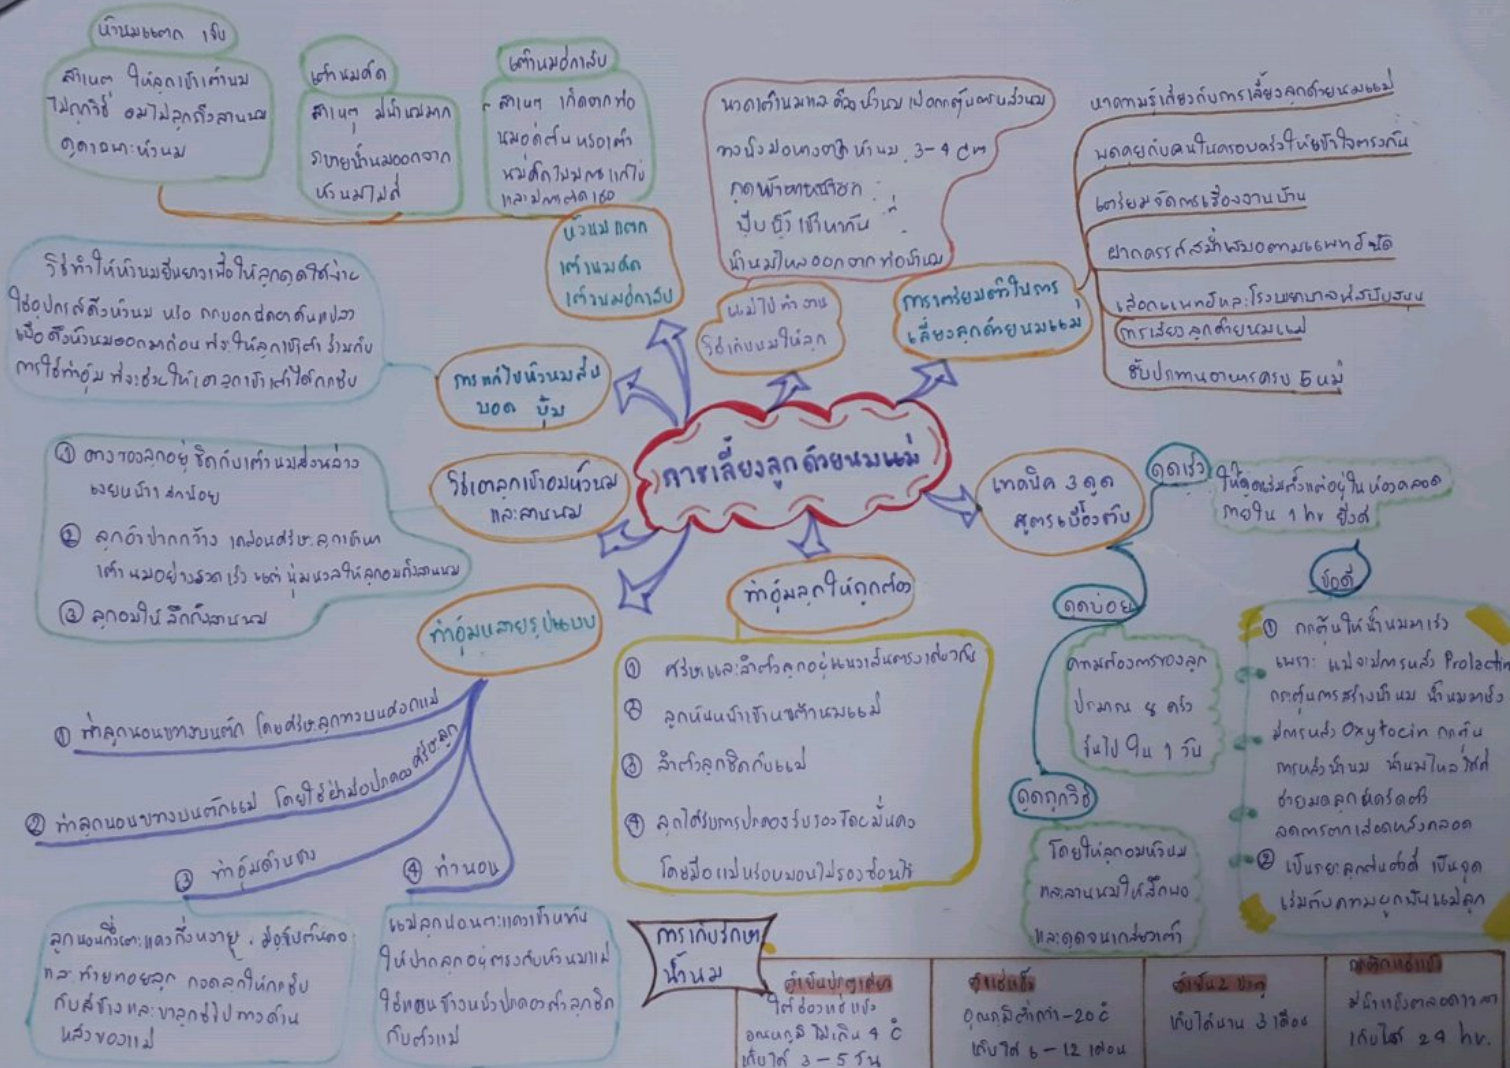 หัวนมแตก เจ็บ
สาเหตุ ให้ลูกเข้าเต้านม
ไม่ถูกวิธี อมไม่ลึกถึงลานนม
ดูดเฉพาะหัวนม
เต้านมคัด
สาเหตุ มีน้ำนมมาก
ระบายน้ำนมออกจาก
หัวนมไม่ดี
เต้านมอักเสบ
สาเหตุ เกิดจากท่อ
นมอุดตันหรือเต้า
นมคัดไม่มีการแก้ไข
และมีการติดเชื้อ
หัวนมแตก
เต้านมคัด
เต้านมอักเสบ
นวดเต้านมและคลึงหัวนม เพื่อกระตุ้นการหลั่งนม
วางนิ้วมือห่างจากหัวนม 3-4 cm
กดเข้าหาหน้าอก
บีบนิ้วเข้าหากัน
น้ำนมไหลออกจากท่อน้ำนม
แม่ไปทำงาน
วิธีเก็บนมให้ลูก
การเตรียมตัวในการ
เลี้ยงลูกด้วยนมแม่
หาความรู้เกี่ยวกับการเลี้ยงลูกด้วยนมแม่
พูดคุยกับคนในครอบครัวให้เข้าใจตรงกัน
เตรียมจัดการเรื่องงานบ้าน
ฝากครรภ์สม่ำเสมอตามแพทย์นัด
เลือกแพทย์และโรงพยาบาลที่สนับสนุน
การเลี้ยงลูกด้วยนมแม่
รับประทานอาหารครบ 5 หมู่
วิธีทำให้หัวนมยืนยาวเพื่อให้ลูกดูดได้ง่าย
ใช้อุปกรณ์ดึงหัวนม หรือ กระบอกฉีดยาดันแปลง
เพื่อดึงหัวนมออกมาก่อนที่จะให้ลูกเข้าเต้า ร่วมกับ
การใช้ท่าอุ้ม ที่จะช่วยให้เอาลูกเข้าเต้าได้กระชับ
การแก้ไขหัวนมสั้น
บอด บุ๋ม
การเลี้ยงลูกด้วยนมแม่
① คางของลูกอยู่ชิดกับเต้านมส่วนล่าง
เงยหน้าเล็กน้อย
② ลูกอ้าปากกว้าง เคลื่อนศีรษะลูกเข้าหา
เต้านมอย่างรวดเร็ว แต่นุ่มนวลให้ลูกอมถึงลานนม
③ ลูกอมให้ลึกถึงลานนม
วิธีเอาลูกเข้าอมหัวนม
และลานนม
เทคนิค 3 ดูด
สูตรเบื้องต้น
ดูดเร็ว
ให้ดูดเริ่มตั้งแต่อยู่ในห้องคลอด
ภายใน 1 hr ยิ่งดี
ข้อดี
① กระตุ้นให้น้ำนมมาเร็ว
เพราะ แม่จะมีการหลั่ง Prolactin
กระตุ้นการสร้างน้ำนม น้ำนมมาเร็ว
มีการหลั่ง Oxytocin กระตุ้น
การหลั่งน้ำนม น้ำนมไหลได้ดี
ช่วยมดลูกหดรัดตัว
ลดการตกเลือดหลังคลอด
② เป็นระยะลูกตื่นตัวดี เป็นจุด
เริ่มต้นความผูกพันแม่ลูก
ดูดบ่อย
ตามต้องการของลูก
ประมาณ 8 ครั้ง
ขึ้นไป ใน 1 วัน
ดูดถูกวิธี
โดยให้ลูกอมหัวนม
และลานนมให้ลึกพอ
และดูดจนเกลี้ยงเต้า
ท่าอุ้มลูกให้ถูกต้อง
① ศีรษะและลำตัวลูกอยู่แนวเส้นตรงเดียวกัน
② ลูกหันหน้าเข้าหาเต้านมแม่
③ ลำตัวลูกชิดกับแม่
④ ลูกได้รับการประคองรับรองโดยมั่นคง
โดยมือแม่หรือหมอนใบรองช้อนไว้
ท่าอุ้มหลายรูปแบบ
① ท่าลูกนอนขวางบนตัก โดยศีรษะลูกวางบนศอกแม่
② ท่าลูกนอนขวางบนตักแม่ โดยใช้ฝ่ามือประคองศีรษะลูก
③ ท่าอุ้มด้านข้าง
④ ท่านอน
ลูกนอนกึ่งตะแคงกึ่งหงาย, มือจับต้นคอ
และท้ายทอยลูก กอดลูกให้กระชับ
กับสีข้างและขาลูกชี้ไปทางด้าน
หลังของแม่
แม่ลูกนอนตะแคงเข้าหากัน
ให้ปากลูกอยู่ตรงกับหัวนมแม่
ใช้แขนข้างหนึ่งประคองตัวลูกชิด
กับตัวแม่
การเก็บรักษา
น้ำนม
ตู้เย็นประตูเดียว
ใต้ช่องแช่แข็ง
อุณหภูมิไม่เกิน 4 c
เก็บได้ 3-5 วัน
ตู้แช่แข็ง
อุณภูมิต่ำกว่า -20 c
เก็บได้ 6-12 เดือน
ตู้เย็น 2 ประตู
เก็บได้นาน 3 เดือน
กระติกแช่แข็ง
มีน้ำแข็งตลอดเวลา
เก็บได้ 24 hr.